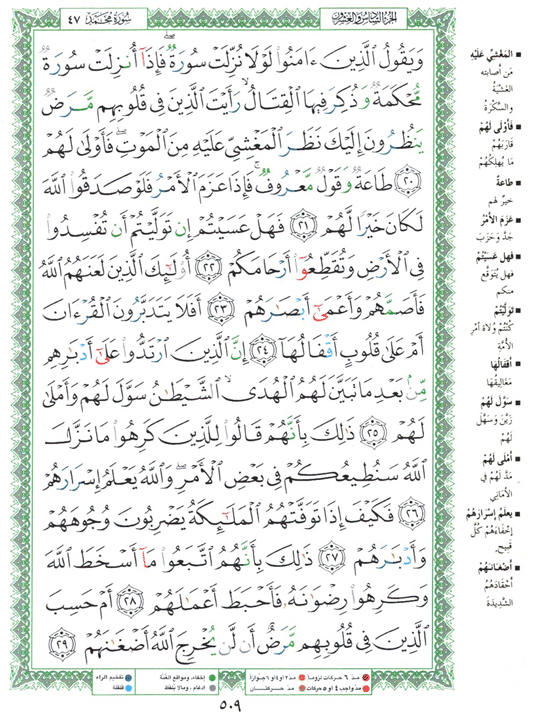 سُورَةُ مُحَمَّد ٤٧
الجزء السادس والعشرون
وَيَقُولُ ٱلَّذِينَ ءَامَنُوا۟ لَوْلَا نُزِّلَتْ سُورَةٌ ۖ فَإِذَآ أُنزِلَتْ سُورَةٌ
مُّحْكَمَةٌ وَذُكِرَ فِيهَا ٱلْقِتَالُ ۙ رَأَيْتَ ٱلَّذِينَ فِى قُلُوبِهِم مَّرَضٌ
يَنظُرُونَ إِلَيْكَ نَظَرَ ٱلْمَغْشِىِّ عَلَيْهِ مِنَ ٱلْمَوْتِ ۖ فَأَوْلَىٰ لَهُمْ
٢٠ طَاعَةٌ وَقَوْلٌ مَّعْرُوفٌ ۚ فَإِذَا عَزَمَ ٱلْأَمْرُ فَلَوْ صَدَقُوا۟ ٱللَّهَ
لَكَانَ خَيْرًا لَّهُمْ ٢١ فَهَلْ عَسَيْتُمْ إِن تَوَلَّيْتُمْ أَن تُفْسِدُوا۟
فِى ٱلْأَرْضِ وَتُقَطِّعُوٓا۟ أَرْحَامَكُمْ ٢٢ أُو۟لَٰٓئِكَ ٱلَّذِينَ لَعَنَهُمُ ٱللَّهُ
فَأَصَمَّهُمْ وَأَعْمَىٰٓ أَبْصَٰرَهُمْ ٢٣ أَفَلَا يَتَدَبَّرُونَ ٱلْقُرْءَانَ
أَمْ عَلَىٰ قُلُوبٍ أَقْفَالُهَآ ٢٤ إِنَّ ٱلَّذِينَ ٱرْتَدُّوا۟ عَلَىٰٓ أَدْبَٰرِهِم
مِّنۢ بَعْدِ مَا تَبَيَّنَ لَهُمُ ٱلْهُدَى ۙ ٱلشَّيْطَٰنُ سَوَّلَ لَهُمْ وَأَمْلَىٰ
لَهُمْ ٢٥ ذَٰلِكَ بِأَنَّهُمْ قَالُوا۟ لِلَّذِينَ كَرِهُوا۟ مَا نَزَّلَ
ٱللَّهُ سَنُطِيعُكُمْ فِى بَعْضِ ٱلْأَمْرِ ۖ وَٱللَّهُ يَعْلَمُ إِسْرَارَهُمْ
٢٦ فَكَيْفَ إِذَا تَوَفَّتْهُمُ ٱلْمَلَٰٓئِكَةُ يَضْرِبُونَ وُجُوهَهُمْ
وَأَدْبَٰرَهُمْ ٢٧ ذَٰلِكَ بِأَنَّهُمُ ٱتَّبَعُوا۟ مَآ أَسْخَطَ ٱللَّهَ
وَكَرِهُوا۟ رِضْوَٰنَهُۥ فَأَحْبَطَ أَعْمَٰلَهُمْ ٢٨ أَمْ حَسِبَ
ٱلَّذِينَ فِى قُلُوبِهِم مَّرَضٌ أَن لَّن يُخْرِجَ ٱللَّهُ أَضْغَٰنَهُمْ ٢٩
المَغْشِيِّ عَلَيْهِ
مَن أصابته
الغَشْيَةُ
والسَّكْرَةُ
فَأَوْلَى لَهُمْ
قَارَبَهُمْ
مَا يُهْلِكُهُمْ
طَاعَةٌ
خيرٌ لهم
عَزَمَ الأَمْرُ
جَدَّ وَحَزَبَ
فَهَل عَسَيْتُمْ
فهل يُتَوَقَّع
منكم
تَوَلَّيْتُمْ
كُنْتُمْ وُلاةَ أمْرِ
الأُمَّةِ
أَقْفَالُهَا
مَغَالِيقُهَا
سَوَّلَ لَهُمْ
زَيَّنَ وسَهَّلَ
لَهُمْ
أَمْلَى لَهُمْ
مَدَّ لَهُمْ في
الأماني
يعلَمُ إِسْرَارَهُمْ
إخْفَاءَهُمْ كُلَّ
قبيح
أَضْغَانَهُمْ
أحْقَادَهُم
الشَّدِيدَةَ
مدّ ٦ حركات لزوماً
مدّ ٢ أو ٤ أو ٦ جوازاً
إخفاء، ومواقع الغنّة
تفخيم الراء
مدّ واجب ٤ أو ٥ حركات
مدّ حركتان
ادغام، وما لا يلفظ
قلقلة
٥٠٩